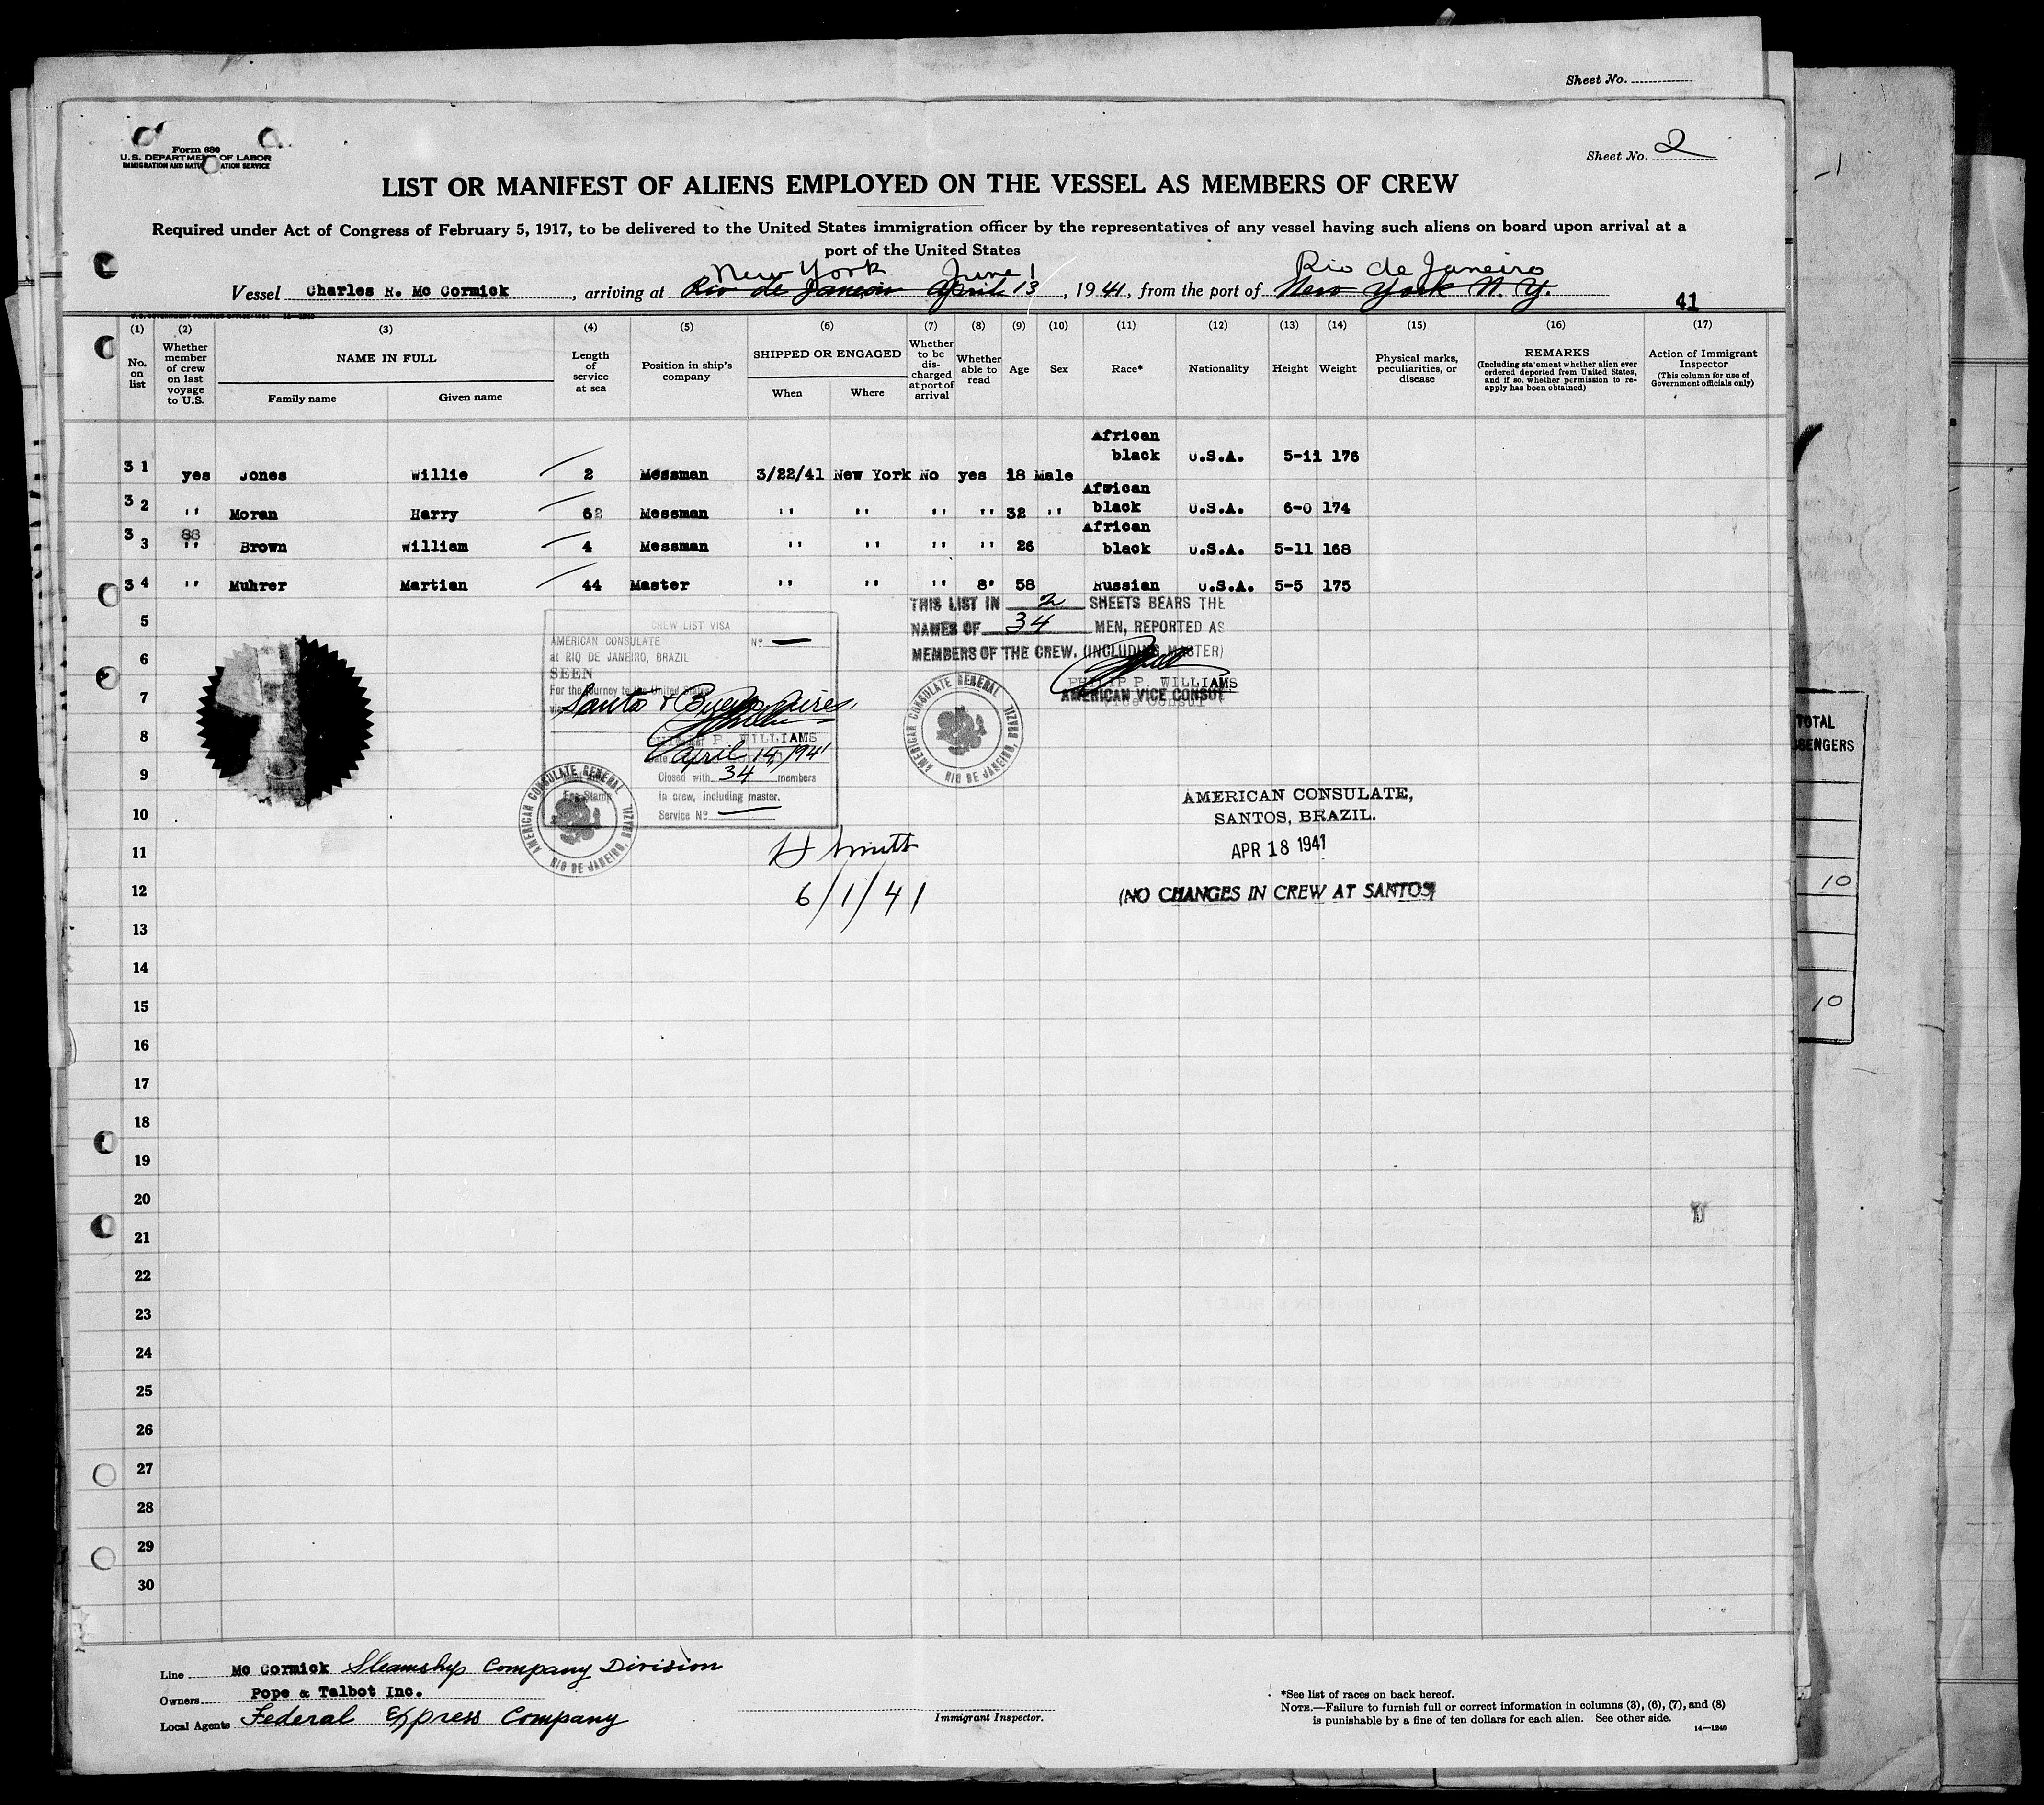 Sheet No.
Form 680
U.S. DEPARTMENT OF LABOR
IMMIGRATION AND NATURALIZATION SERVICE
Sheet No. 2
LIST OR MANIFEST OF ALIENS EMPLOYED ON THE VESSEL AS MEMBERS OF CREW
Required under Act of Congress of February 5, 1917, to be delivered to the United States immigration officer by the representatives of any vessel having such aliens on board upon arrival at a
port of the United States
New York June 1 Rio de Janeiro
Vessel Charles R. Mc Cormick, arriving at Rio de Janeiro April 13, 1941, from the port of New York N. Y.
41
(1) (2) (3) (4) (5) (6) (7) (8) (9) (10) (11) (12) (13) (14) (15) (16) (17)
No. on list
Whether member of crew on last voyage to U.S.
NAME IN FULL
Family name Given name
Length of service at sea
Position in ship's company
SHIPPED OR ENGAGED
When Where
Whether to be discharged at port of arrival
Whether able to read
Age
Sex
Race*
Nationality
Height
Weight
Physical marks, peculiarities, or disease
REMARKS
(Including statement whether alien ever ordered deported from United States, and if so, whether permission to reapply has been obtained)
Action of Immigrant Inspector
(This column for use of Government officials only)
31 yes Jones Willie 2 Messman 3/22/41 New York No yes 18 Male African black U.S.A. 5-11 176
32 '' Moran Harry 62 Messman '' '' '' '' 32 '' African black U.S.A. 6-0 174
88
33 '' Brown William 4 Messman '' '' '' '' 26 African black U.S.A. 5-11 168
34 '' Muhrer Martian 44 Master '' '' '' 8' 58 Russian U.S.A. 5-5 175
THIS LIST IN 2 SHEETS BEARS THE
NAMES OF 34 MEN, REPORTED AS
MEMBERS OF THE CREW. (INCLUDING MASTER)
PHILIP P. WILLIAMS
AMERICAN VICE CONSUL
Vice Consul
AMERICAN CONSULATE GENERAL
RIO DE JANEIRO, BRAZIL
CREW LIST VISA
AMERICAN CONSULATE No —
at RIO DE JANEIRO, BRAZIL
SEEN
For the journey to the United States
via Santos & Buenos Aires.
PHILIP P. WILLIAMS
Date April 14, 1941
Closed with 34 members
in crew, including master.
Service No —
Fee Stamp
AMERICAN CONSULATE GENERAL
RIO DE JANEIRO, BRAZIL
H Smith
6/1/41
AMERICAN CONSULATE,
SANTOS, BRAZIL.
APR 18 1941
(NO CHANGES IN CREW AT SANTOS)
5
6
7
8
9
10
11
12
13
14
15
16
17
18
19
20
21
22
23
24
25
26
27
28
29
30
TOTAL
PASSENGERS
10
10
Line Mc Cormick Steamship Company Division
Owners Pope & Talbot Inc.
Local Agents Federal Express Company
Immigrant Inspector.
*See list of races on back hereof.
NOTE.—Failure to furnish full or correct information in columns (3), (6), (7), and (8)
is punishable by a fine of ten dollars for each alien. See other side.
14—1240